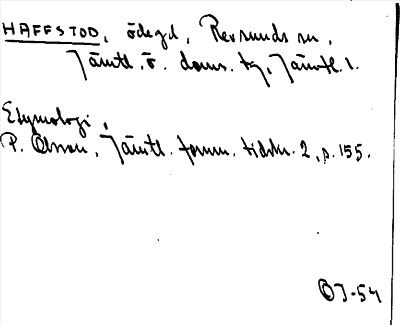 HAFFSTOD, ödegd, Revsunds sn,
Jämtl. ö. doms. tg, Jämtl. l.
Etymologi,
P. Olsson, Jämtl. fornm. tidskr. 2, p. 155.
OJ-54